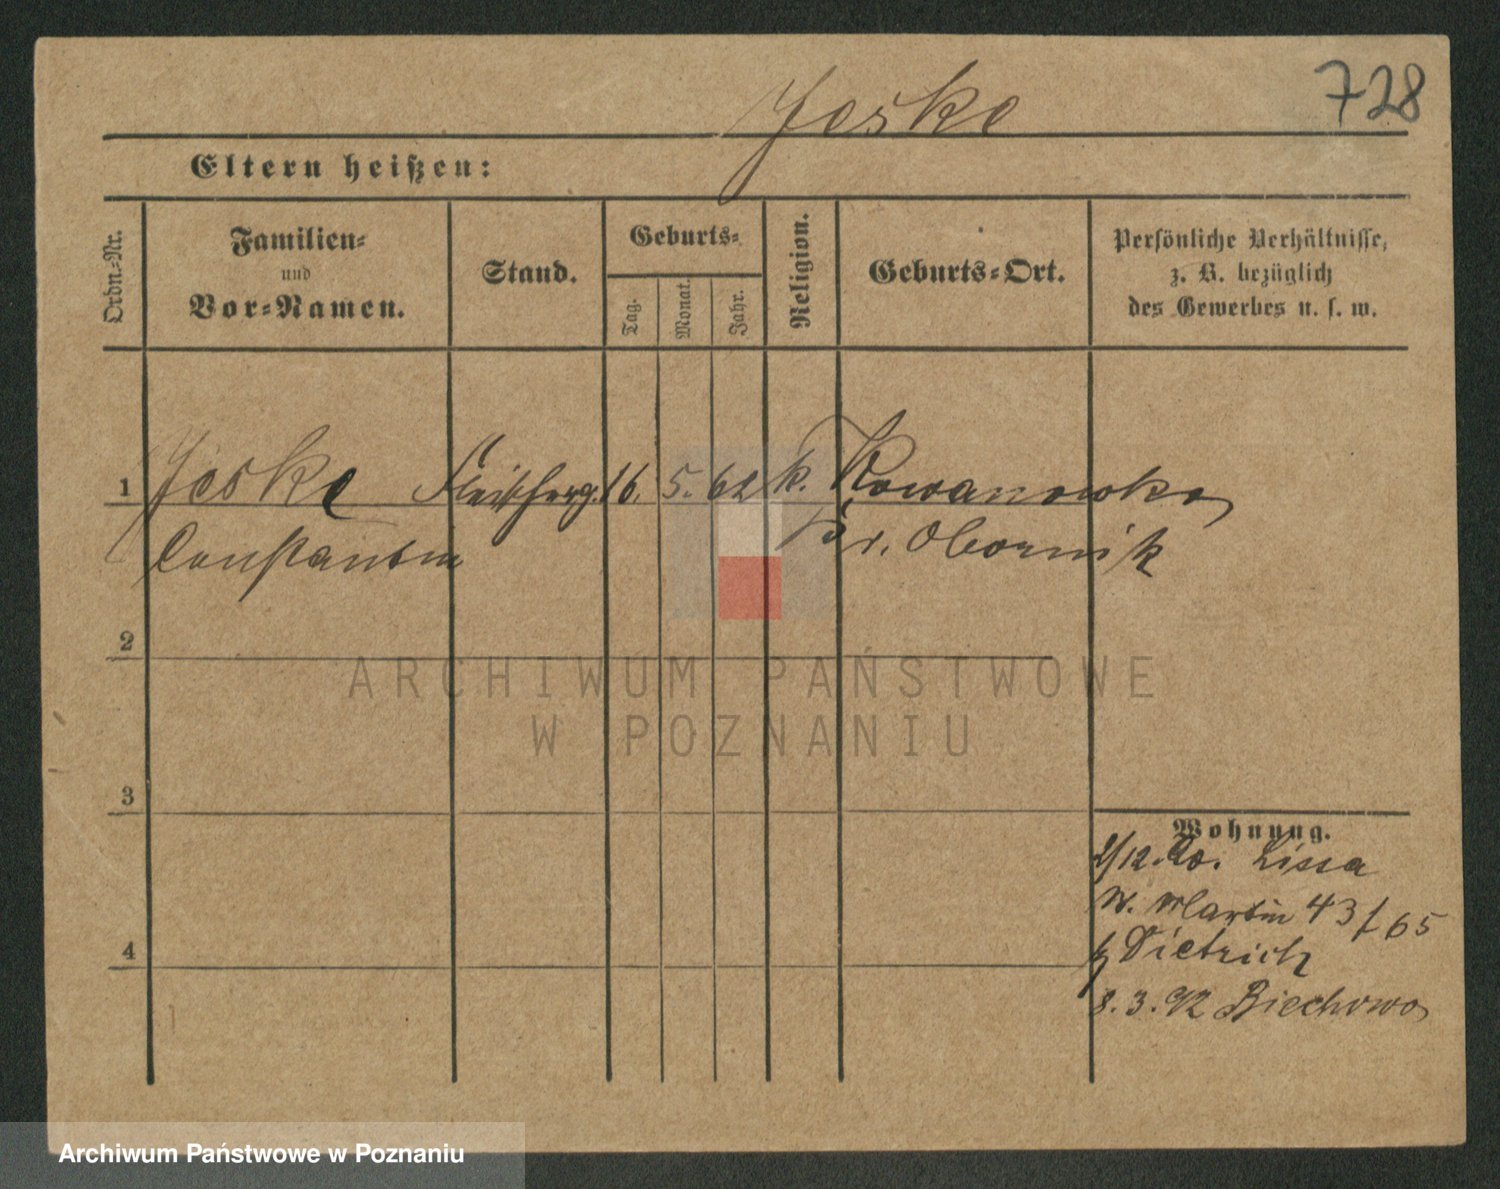 728
Jeske
Eltern heißen:
Ordn.-Nr.
Familien-
und
Vor-Namen.
Stand.
Geburts-
Tag.
Monat.
Jahr.
Religion.
Geburts-Ort.
Persönliche Verhältnisse,
z. B. bezüglich
des Gewerbes u. s. w.
1 Jeske 16. 5. 62 k. Kowanowko
Constantin Kr. Obornik
2
3
4
Wohnung.
Lissa
W. Martin 43/65
Dietrich
8.3.92 Biechowo
ARCHIWUM PAŃSTWOWE
W POZNANIU
Archiwum Państwowe w Poznaniu